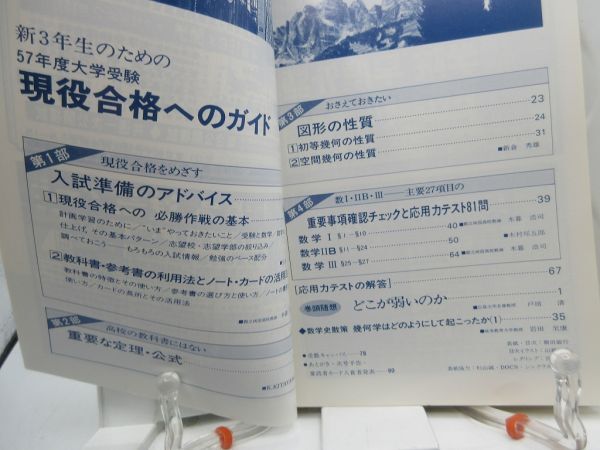 新3年生のための
57年度大学受験
現役合格へのガイド
第1部
現役合格をめざす
入試準備のアドバイス
1現役合格への 必勝作戦の基本
計画学習のために/"いま"やっておきたいこと/受験と数学,
仕上げ,その基本パターン/志望校・志望学部の絞り込み/
調べておこう――もろもろの入試情報/勉強のペース配分
2教科書・参考書の利用法とノート・カードの活用
教科書の特徴とその使い方/参考書の選び方と使い方/ノートの
使い方/カードの長所とその活用法
第2部
高校の教科書にはない
重要な定理・公式
第3部
おさえておきたい
図形の性質 23
1初等幾何の性質 24
2空間幾何の性質 31
第4部
数Ⅰ・ⅡB・Ⅲ――主要27項目の
重要事項確認チェックと応用力テスト81問 39
数学Ⅰ §1~§10 40
数学ⅡB §11~§24 50
数学Ⅲ §25~§27 64
[応用力テストの解答] 67
巻頭随想 どこが弱いのか 1
◆数学史散策 幾何学はどのようにして起こったか(1) 35